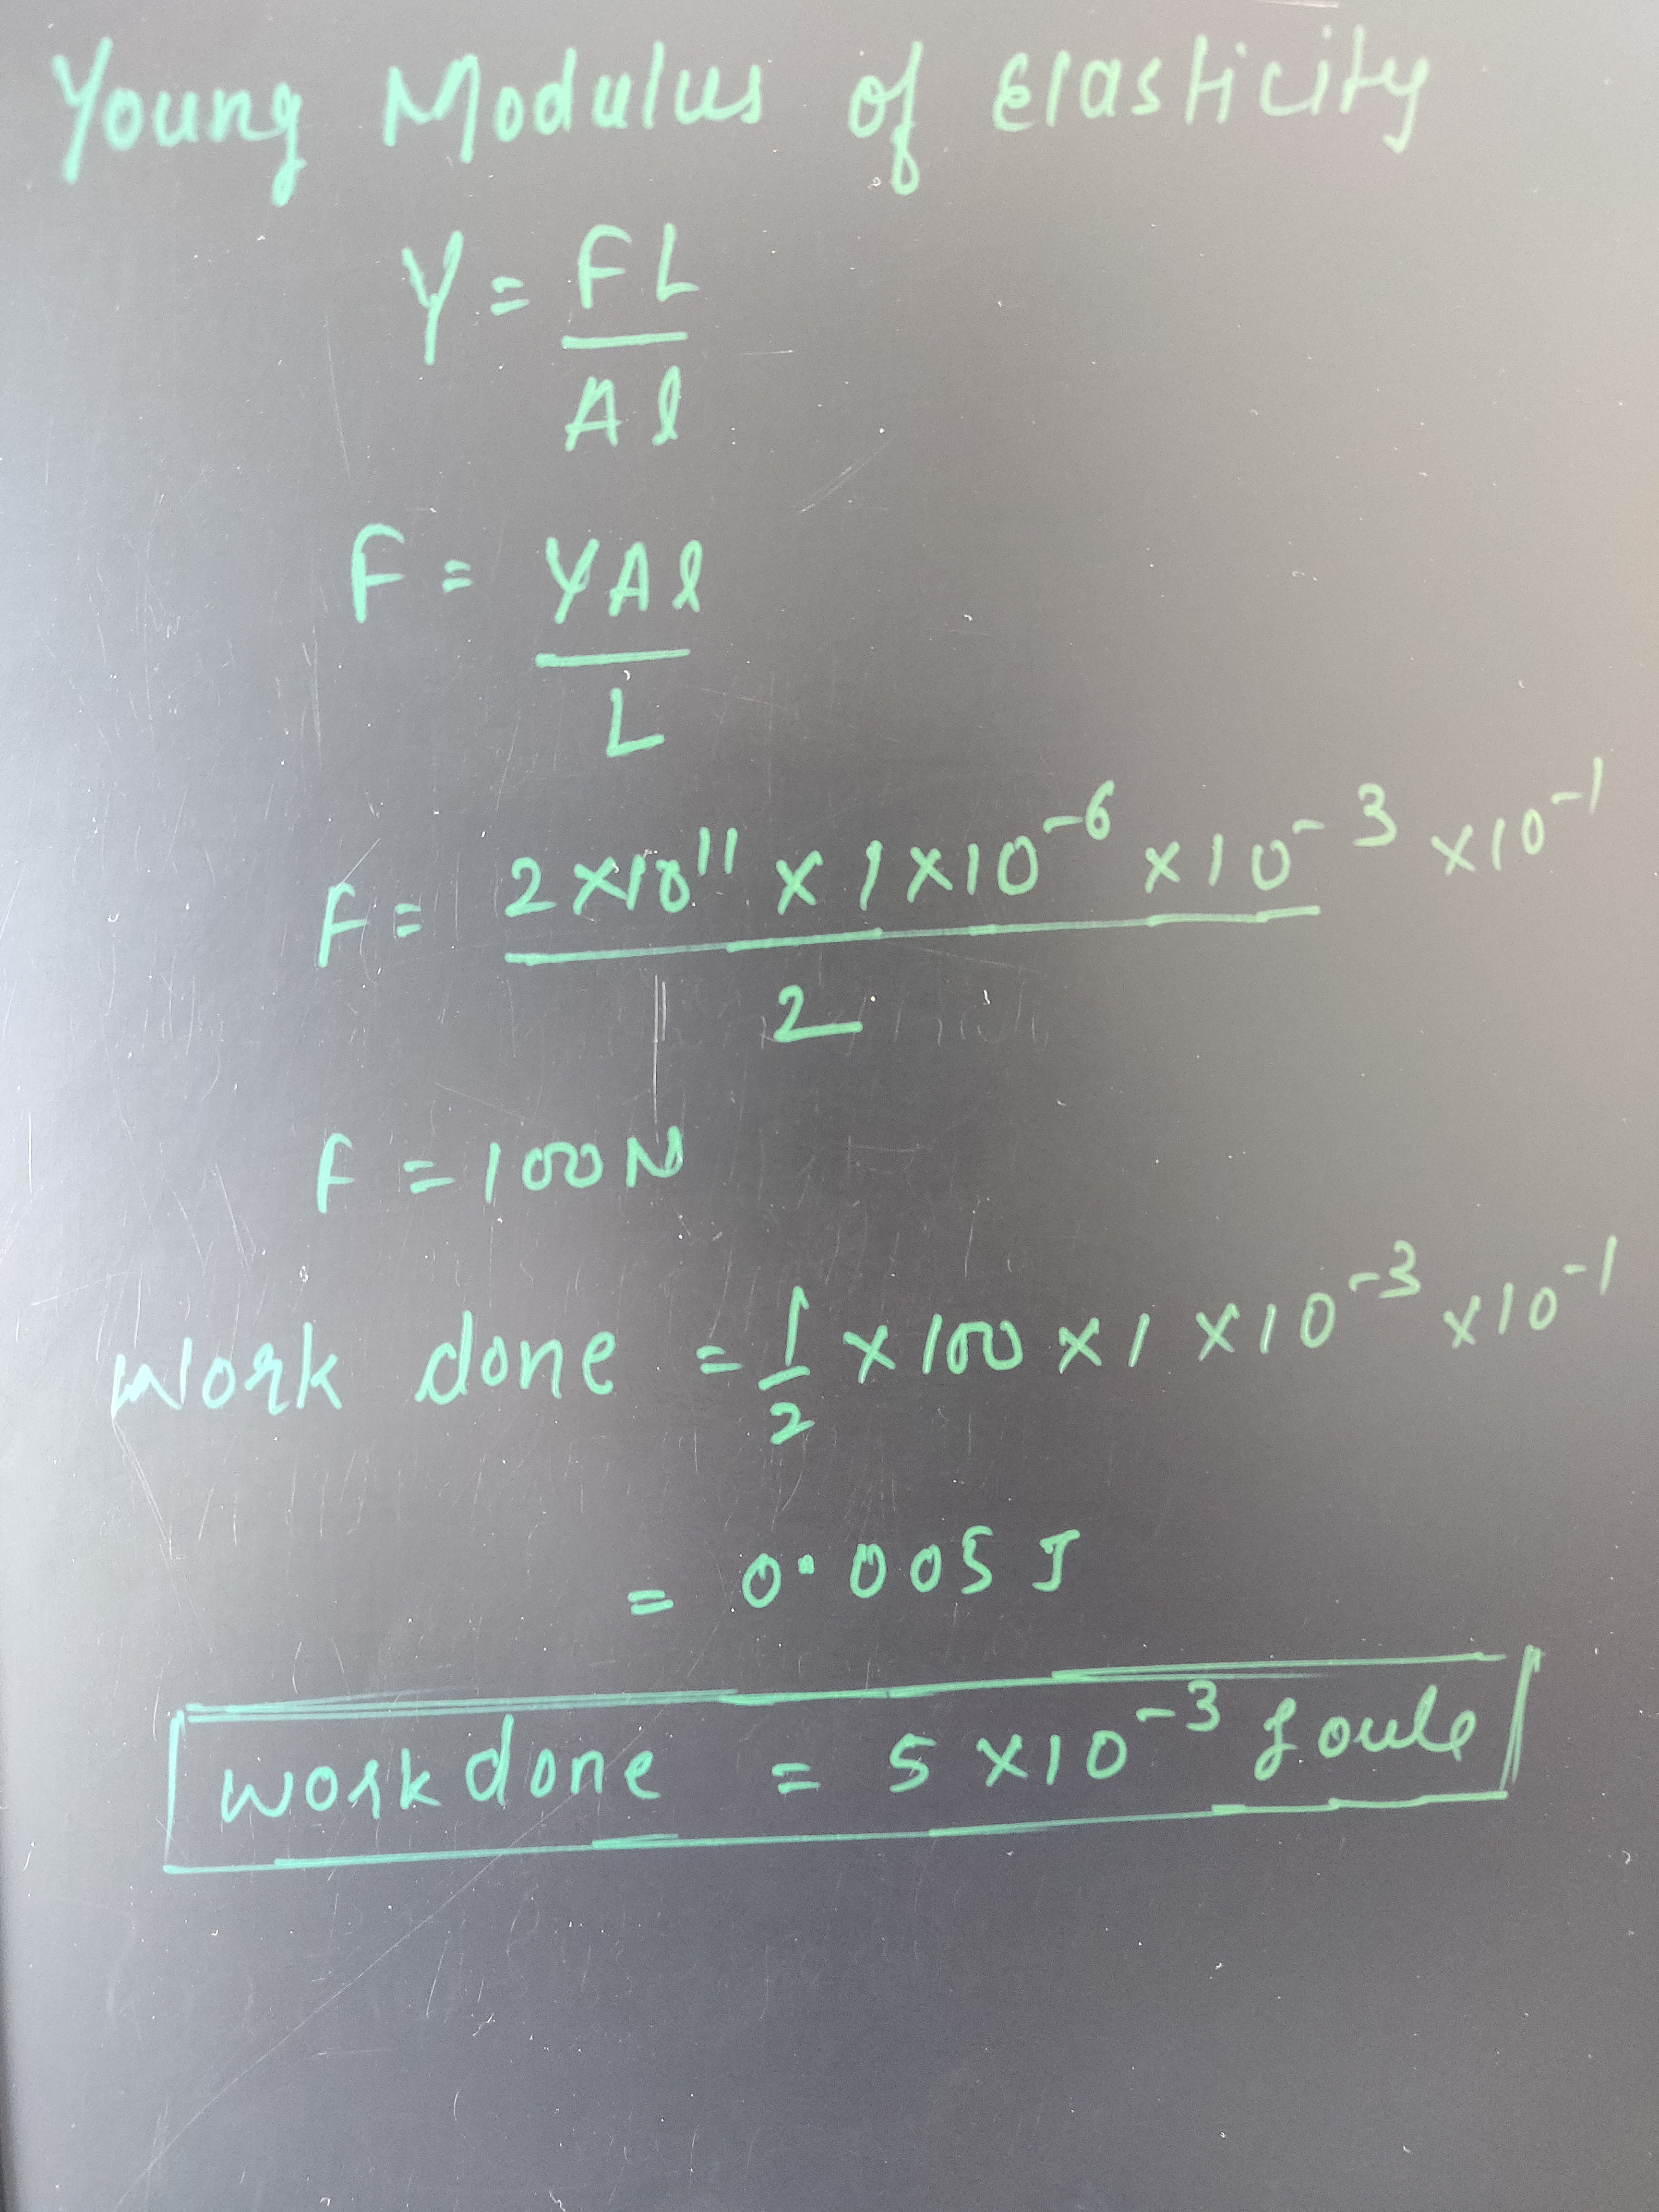 Young Modulus of Elasticity
Y = FL
Al
F = YAl
L
F = 2×10¹¹ × 1×10⁻⁶ ×10⁻³ ×10⁻¹
2
F = 100N
Work done = 1/2 × 100 × 1 × 10⁻³ ×10⁻¹
= 0.005 J
Work done = 5 ×10⁻³ Joule